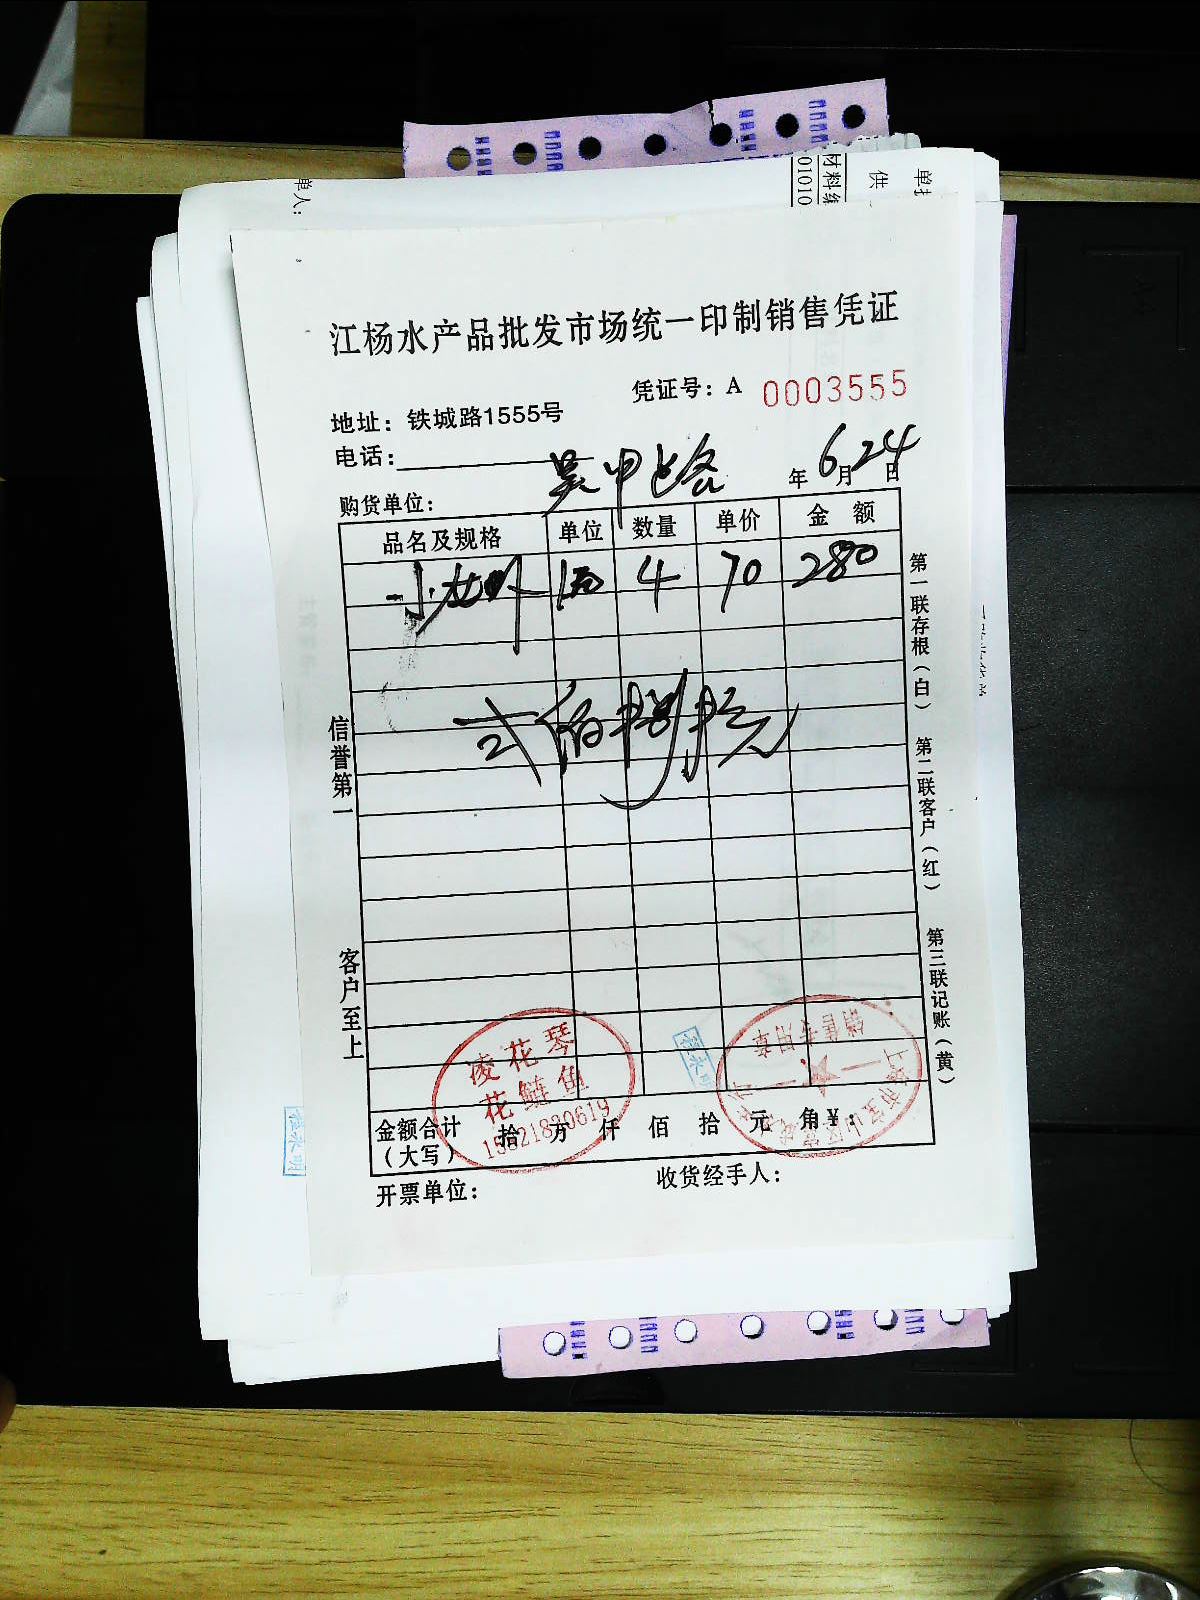 单人：
材料编
01010
供
江杨水产品批发市场统一印制销售凭证
凭证号：A 0003555
地址：铁城路1555号
电话：
购货单位：
吴中路
年6月24日
品名及规格 单位 数量 单价 金 额
小龙虾 4 70 280
弍佰捌拾元
信誉第一
客户至上
第一联存根（白）
第二联客户（红）
第三联记账（黄）
凌花琴
花鲢鱼
15821830619
销售专用章
上海市宝山区
金额合计
（大写）
拾 万 仟 佰 拾 元 角￥：
开票单位：
收货经手人：